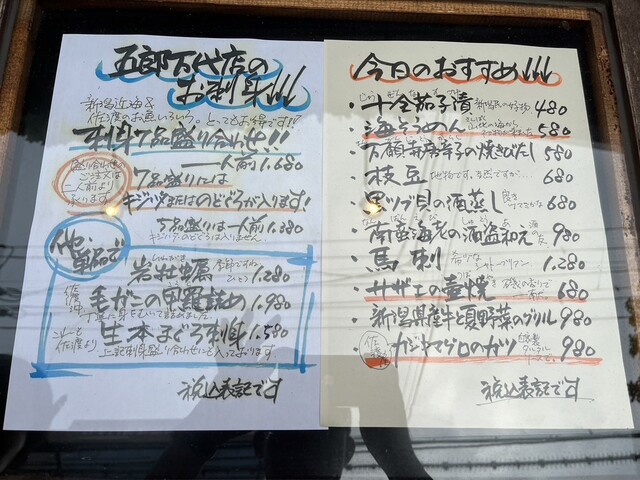 五郎万代店の
お刺身
新潟近海&
佐渡のお魚いろいろ。とってもお得です!!
刺身7品盛り合わせ!!
一人前 1.680
盛り合わせの
ご注文は
二人前より
7品盛りには
キジハタまたはのどぐろが入ります!
5品盛りは一人前1.280
キジハタ・のどぐろは入りません
他、
単品で
岩牡蠣 ひとつ 1.280
毛ガニの甲羅詰め 1.980
生本まぐろ刺身 1.580
佐渡より
上記刺身盛り合わせにも入っております
税込表記です
今日のおすすめ
・十全茄子漬 480
・海そうめん 580
・万願寺唐辛子の焼きびたし 580
・枝豆 680
・黒ツブ貝の酒蒸し 680
・南蛮海老の酒盗和え 980
・馬刺 シャトーブリアン 1.280
・サザエの壺焼き 680
・新潟県産牛と夏野菜のグリル 980
佐渡
カジキマグロのカツ 自家製タルタルソース 980
税込表記です